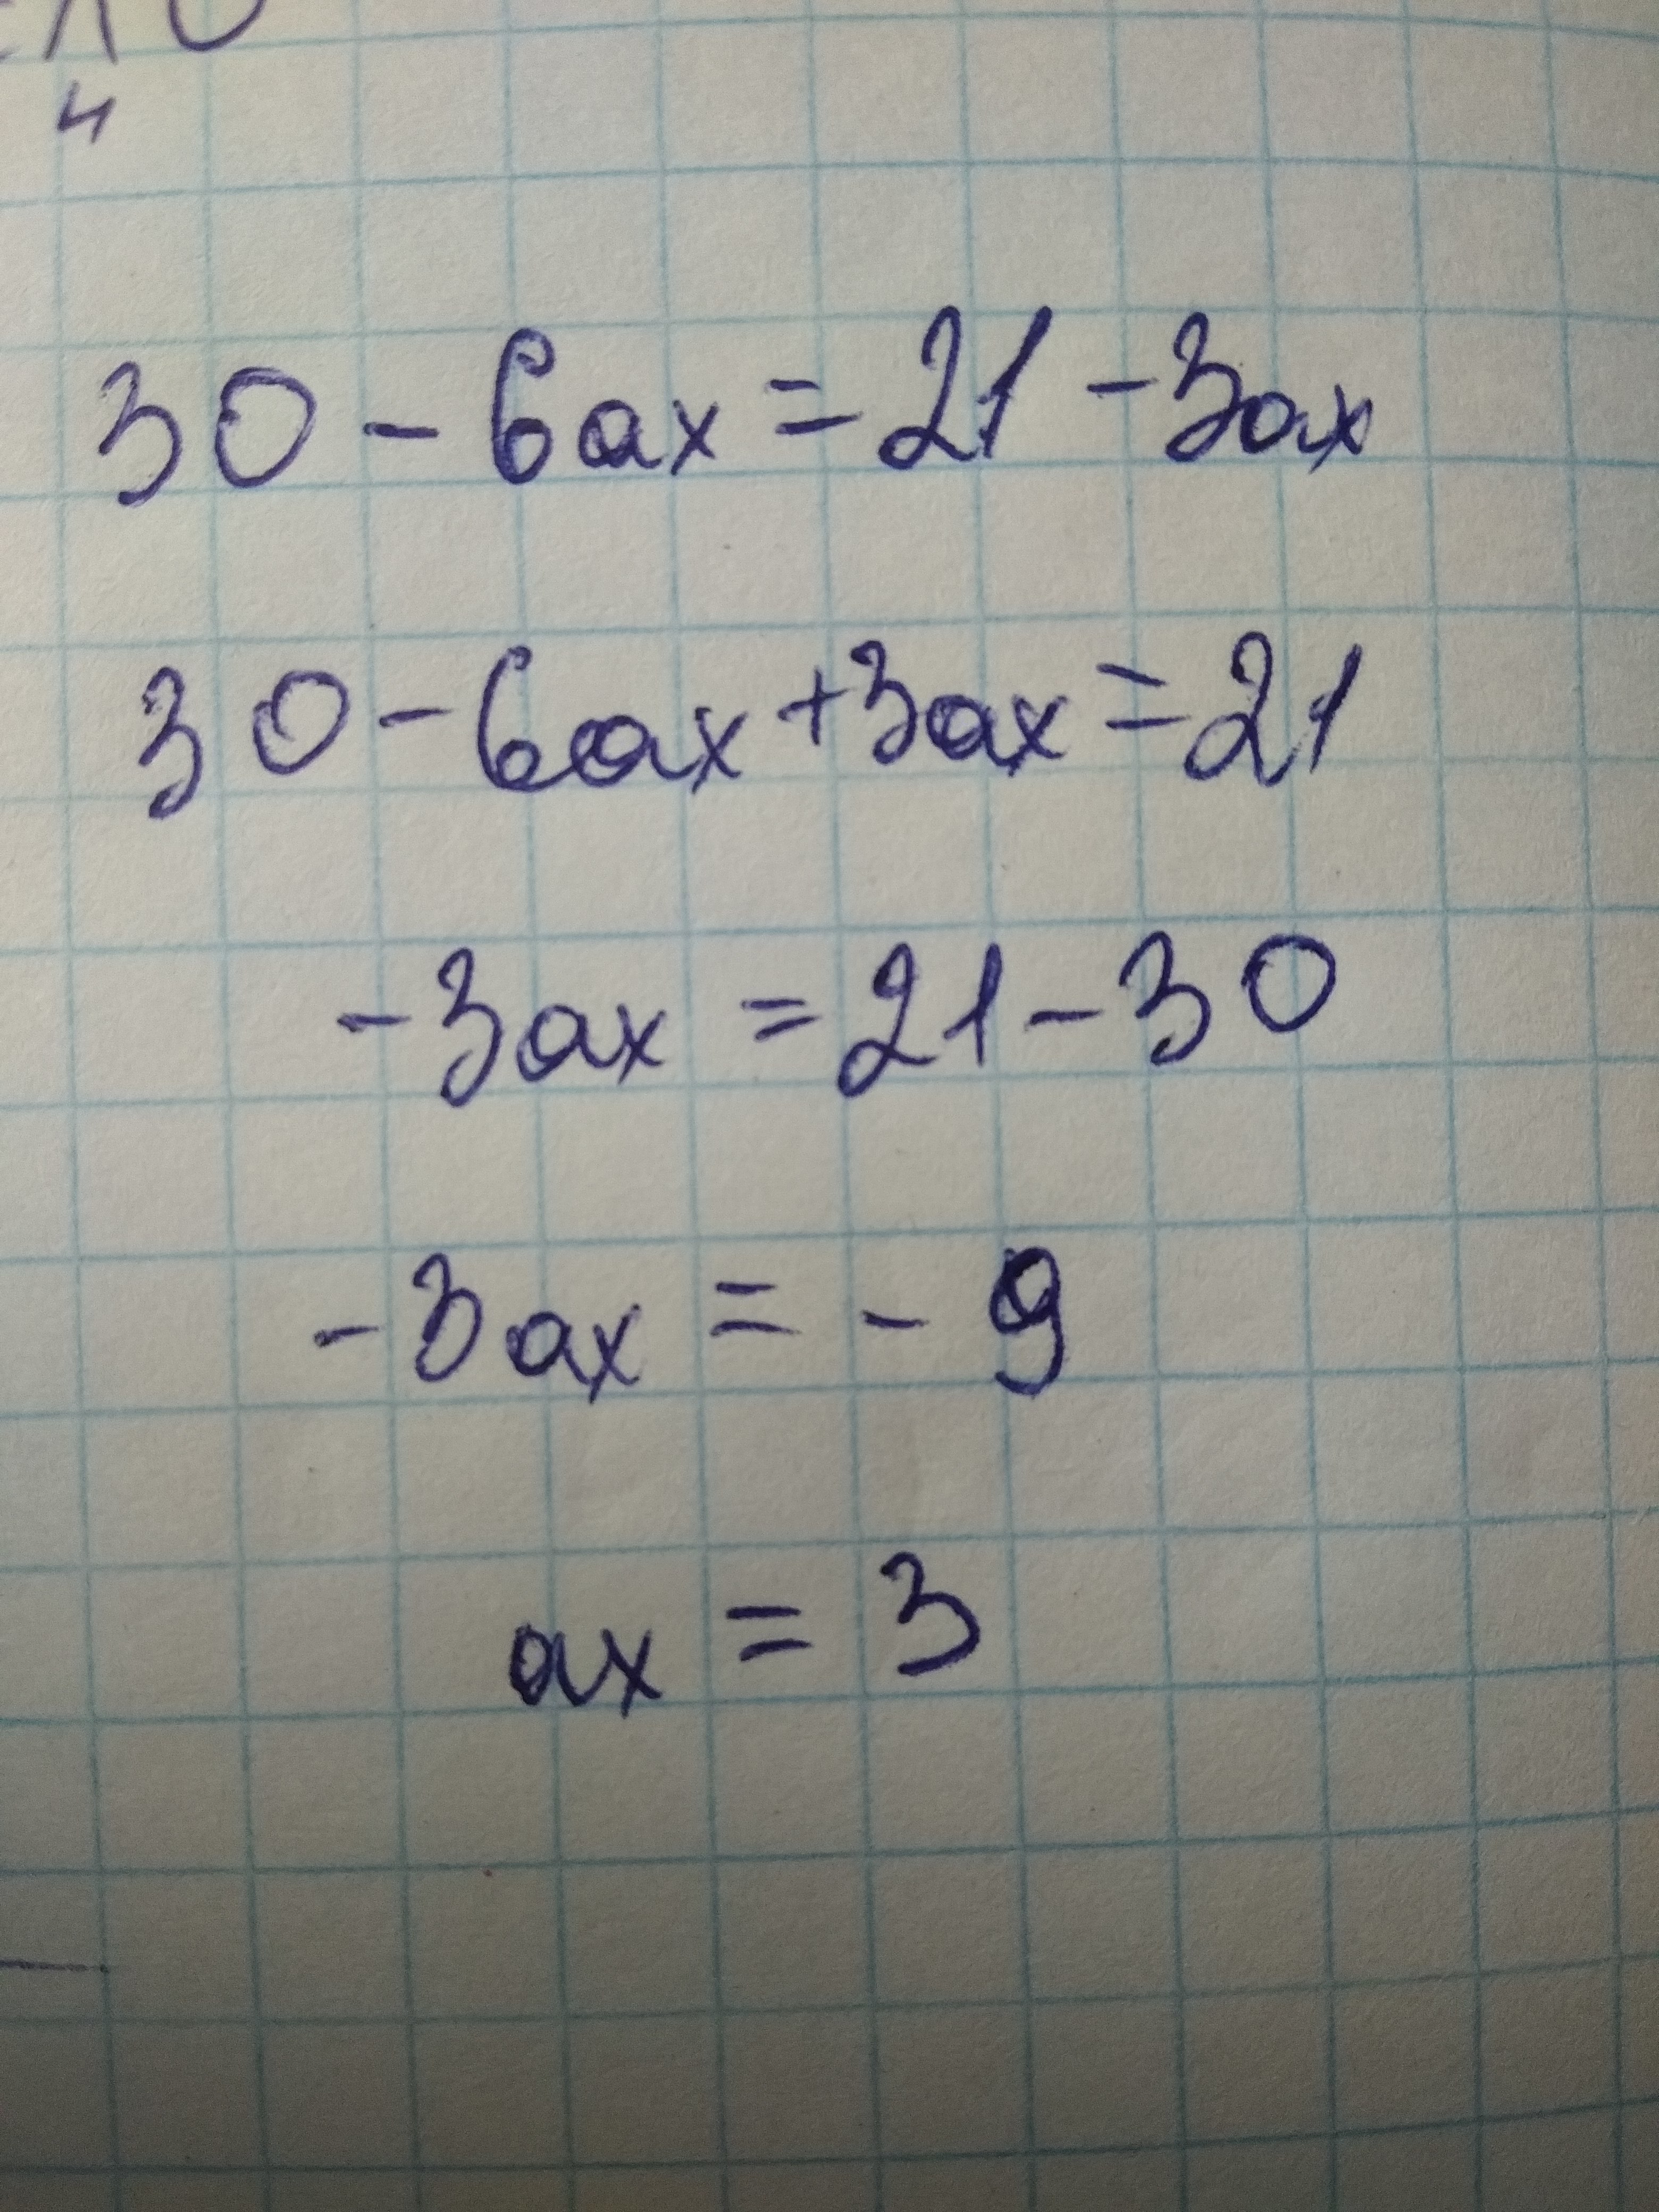 30 - 6ax = 21 - 3ax
30 - 6ax + 3ax = 21
-3ax = 21 - 30
-3ax = - 9
ax = 3